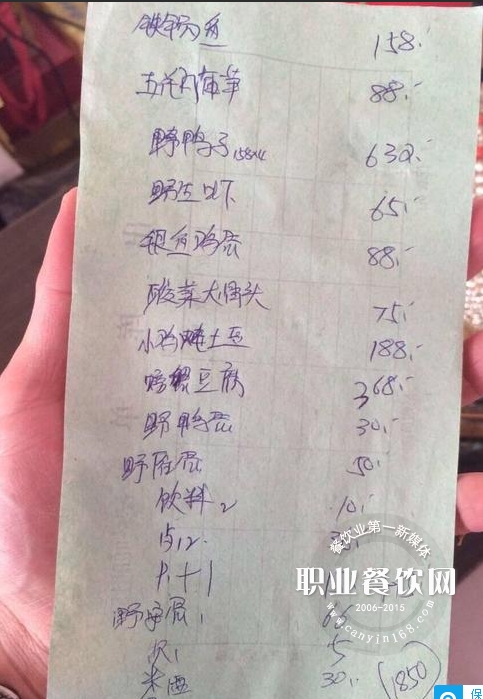 铁锅鱼 158.-
五花肉 88.-
野鸭子 158×4 632.-
野生 65.-
银鱼鸡蛋 88.-
酸菜大骨头 75.-
小鸡炖土豆 188.-
螃蟹豆腐 368.-
野鸭蛋 30.-
野雁蛋 50.-
饮料 2 10.-
野 蛋 1
5
米酒 30.- 1850
餐饮业第一新媒体
职业餐饮网
2006-2015
www.canyin168.com
保